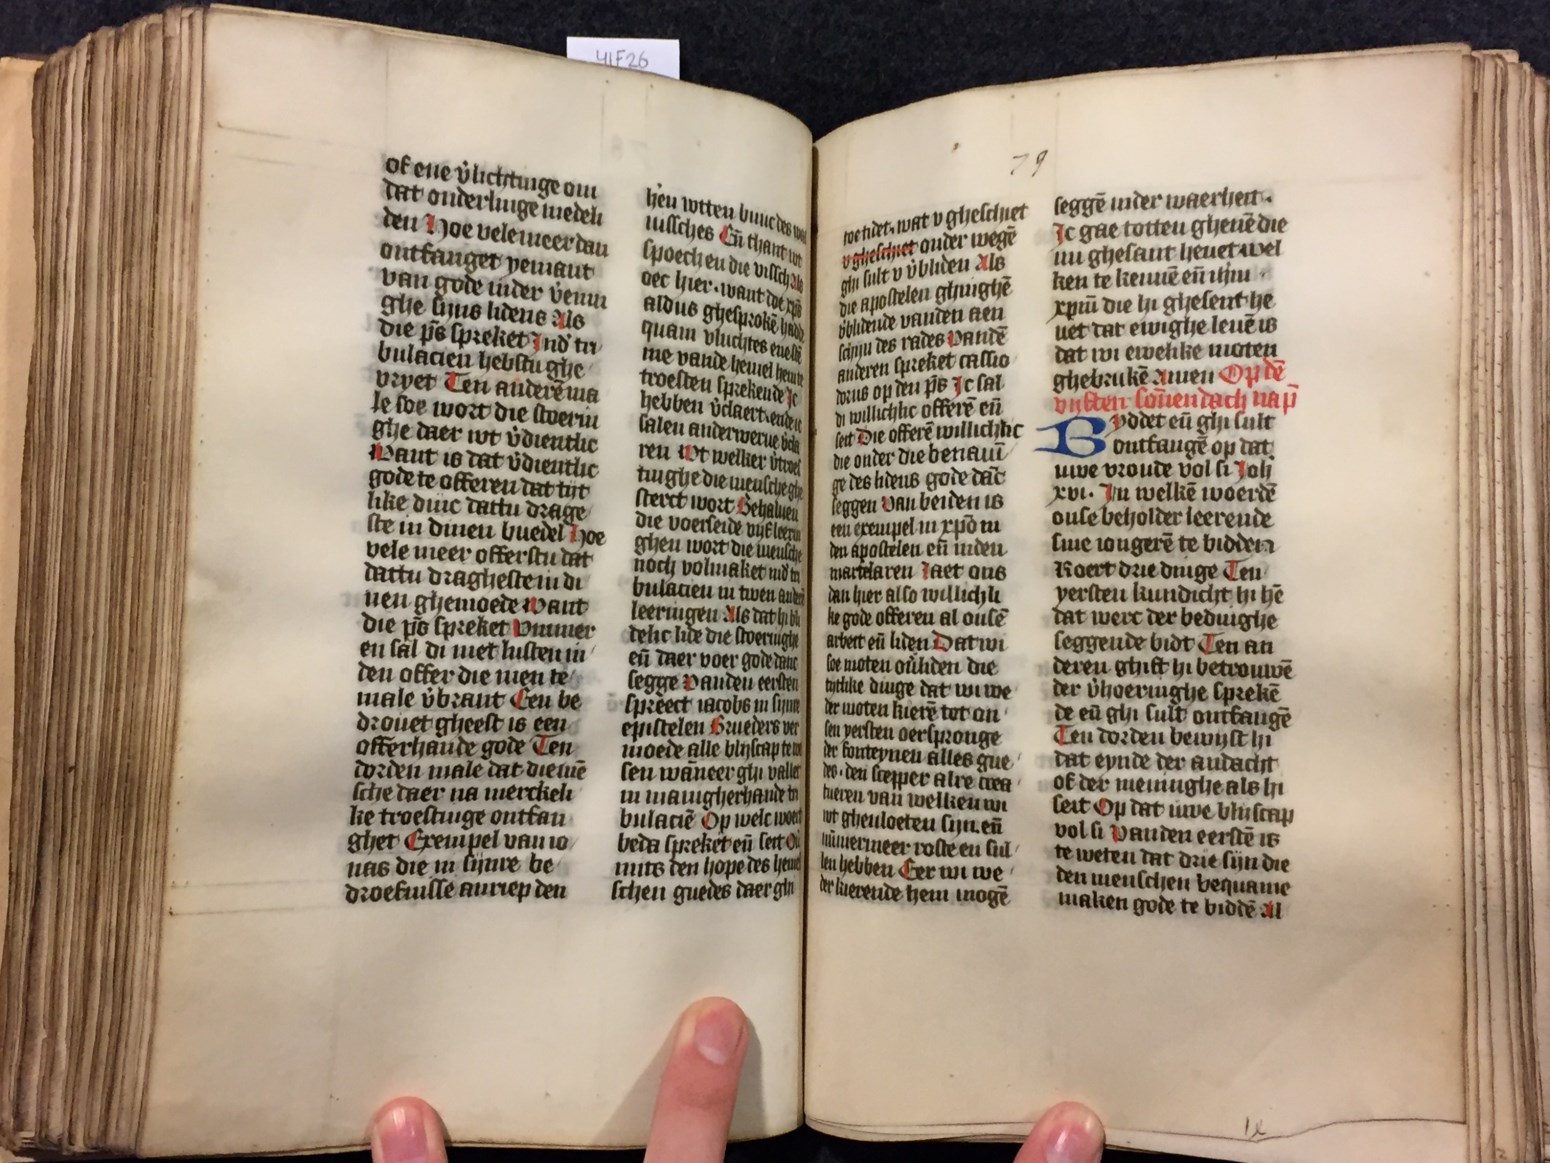 41F26
of ene v̉lichtinge om
dat onderlinge medeli
den Hoe vele meer dan
ontfanget yemant
van gode inder v̉enin
ghe sijns lidens Als
die p̄s spreket Ind' tri
bulacien hebstu ghe
vryet Ten anderē ma
le soe wort die stoerin
ghe daer wt v̉dientlic
Want is dat v̉dientlic
gode te offeren dat tijt
like dinc dattu drage
ste in dinen buedel Hoe
vele meer offerstu dat
dattu dragheste in di
nen ghemoede Want
die p̄s spreket Vmmer
en sal di niet lusten in
den offer die men te
male v̉brant Een be
drouet gheest is een
offerhande gode Ten
dorden male dat die mē
sche daer na merckeli
ke troestinge ontfan
ghet Exempel van io
nas die in sijnre be
droefnisse anriep den
hen wtten buuc des wal
uissches Eñ thant wt
spoech en die vissch Als
oec hier. want doe xp̄s
aldus ghesprokē hadd
quam vluchtes ene stē
me vande hemel hem te
troesten sprekende Ic
hebben v̉claert. ende ic
salen anderwerue v̉cla
ren Wt welker v̉troes
tinghe die mensche ghe
sterct wort Behaluen
die voerseide vijf leerin
ghen wort die mensche
noch volmaket ind' tri
bulacien in twen ander
leeringen Als dat hi bli
delic lide die stoeringhe
eñ daer voer gode danc
segge Vanden eersten
sprēect iacobs in sijnre
epistelen Brueders ver
moede alle blijscap te we
sen wāneer ghi vallet
in manigherhande tri
bulaciē Op welc woert
beda spreket eñ seit Ou
mits den hope des hemel
schen guedes daer ghi
79
toe tidet. wat v gheschiet
v gheschiet onder wegē
ghi sult v v̉bliden Als
die apostelen ghinghē
v̉blidende vanden aen
schijn des rades Vandē
anderen spreket cassio
dorus op den p̄s Ic sal
di willichlic offerē eñ
seit Die offerē willichlic
die onder die benauui
ge des lidens gode dāc
seggen Van beiden is
een exempel in xp̄o in
den apostelen eñ inden
martelaren Laet ons
dan hier also willichli
ke gode offeren al onsē
arbeit eñ liden Dat wi
soe moten ou̓liden die
tijtlike dinge dat wi we
der moten kierē tot on
sen yersten oerspronge
der fonteynen alles gue
des. den scepper alre crea
tueren van welken wi
wt ghevloeten sijn. eñ
nūmermeer roste en sul
len hebben Eer wi we
der kierende hem mogē
seggē inder waerheit.
Ic gae totten ghenē die
mi ghesant heuet. wel
ken te kennē eñ ihm
xpm̄ die hi ghesent he
uet dat ewighe leuē is
dat wi ewelike moten
ghebrukē Amen Op dē
vijften sōnendach na p̄
Byddet eñ ghi sult
ontfangē op dat
uwe vroude vol si Joh
xvi. In welkē woerdē
onse beholder leerende
sine iongerē te bidden
Roert drie dinge Ten
yersten kundicht hi hē
dat werc der bedinghe
seggende bidt Ten an
deren ghift hi betrouwē
der v̉hoeringhe sprekē
de eñ ghi sult ontfangē
Ten dorden bewijst hi
dat eynde der andacht
of der meninghe als hi
seit Op dat uwe blijscap
vol si Vanden eerstē is
te weten dat drie sijn die
den menschen bequame
maken gode te biddē Al